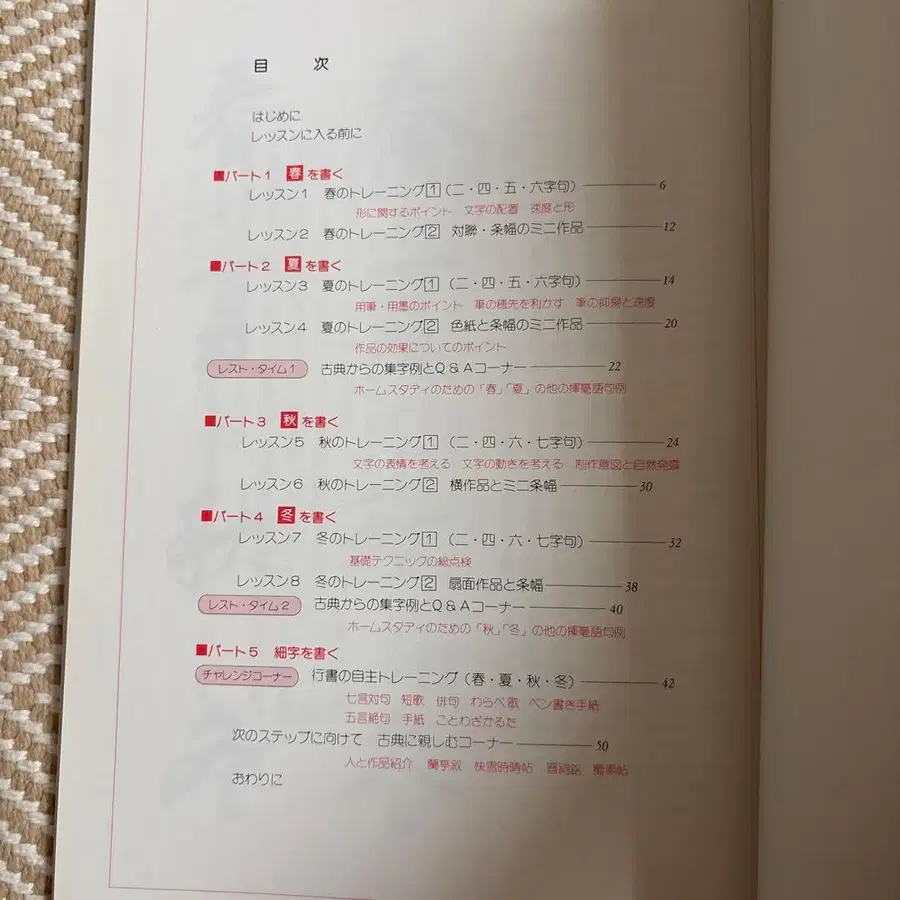 目 次
はじめに
レッスンに入る前に
■パート1 春を書く
レッスン1 春のトレーニング1（二・四・五・六字句） 6
形に関するポイント 文字の配置 速度と形
レッスン2 春のトレーニング2 対聯・条幅のミニ作品 12
■パート2 夏を書く
レッスン3 夏のトレーニング1（二・四・五・六字句） 14
用筆・用墨のポイント 筆の穂先を利かす 筆の抑揚と速度
レッスン4 夏のトレーニング2 色紙と条幅のミニ作品 20
作品の効果についてのポイント
レスト・タイム1 古典からの集字例とQ&Aコーナー 22
ホームスタディのための「春」「夏」の他の揮毫語句例
■パート3 秋を書く
レッスン5 秋のトレーニング1（二・四・六・七字句） 24
文字の表情を考える 文字の動きを考える 制作意図と自然発露
レッスン6 秋のトレーニング2 横作品とミニ条幅 30
■パート4 冬を書く
レッスン7 冬のトレーニング1（二・四・六・七字句） 32
基礎テクニックの総点検
レッスン8 冬のトレーニング2 扇面作品と条幅 38
レスト・タイム2 古典からの集字例とQ&Aコーナー 40
ホームスタディのための「秋」「冬」の他の揮毫語句例
■パート5 細字を書く
チャレンジコーナー 行書の自主トレーニング（春・夏・秋・冬） 42
七言対句 短歌 俳句 わらべ歌 ペン書き手紙
五言絶句 手紙 ことわざかるた
次のステップに向けて 古典に親しむコーナー 50
人と作品紹介 蘭亭叙 快雪時晴帖 晋祠銘 蜀素帖
おわりに